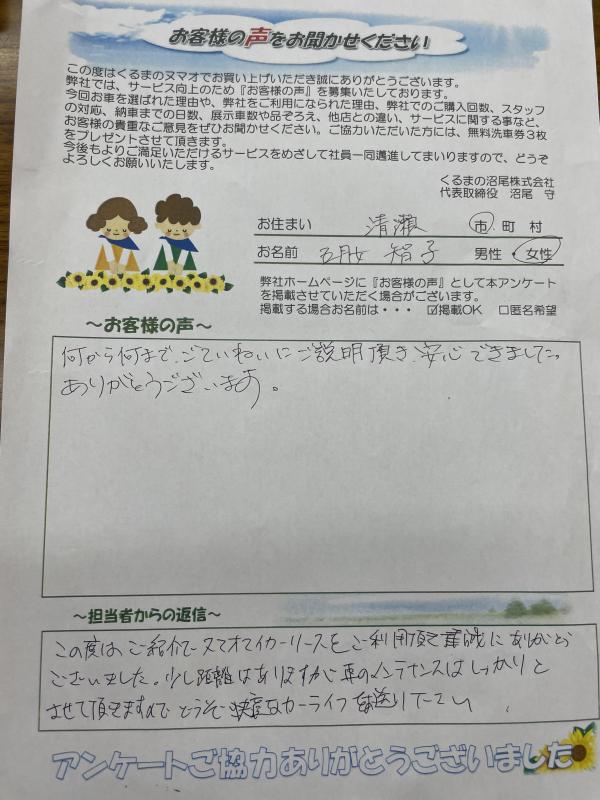 お客様の声をお聞かせください
この度はくるまのヌマオでお買い上げいただき誠にありがとうございます。
弊社では、サービス向上のため『お客様の声』を募集いたしております。
今回お車を選ばれた理由や、弊社をご利用になられた理由、弊社でのご購入回数、スタッフ
の対応、納車までの日数、展示車数や品ぞろえ、他店との違い、サービスに関する事など、
お客様の貴重なご意見をぜひお聞かせください。ご協力いただいた方には、無料洗車券3枚
をプレゼントさせて頂きます。
今後もよりご満足いただけるサービスをめざして社員一同邁進してまいりますので、どうぞ
よろしくお願いいたします。
くるまの沼尾株式会社
代表取締役 沼尾 守
お住まい 清瀬 市 町 村
お名前 五月女 智子 男性・女性
弊社ホームページに『お客様の声』として本アンケート
を掲載させていただく場合がございます。
掲載する場合お名前は・・・ ☑掲載OK □匿名希望
〜お客様の声〜
何から何まで、ごていねいにご説明頂き、安心できました。
ありがとうございます。
〜担当者からの返信〜
この度はご紹介でヌマオマイカーリースをご利用頂き誠にありがとう
ございました。少し距離はありますが車のメンテナンスはしっかりと
させて頂きますので どうぞ快適なカーライフをお送り下さい。
アンケートご協力ありがとうございました